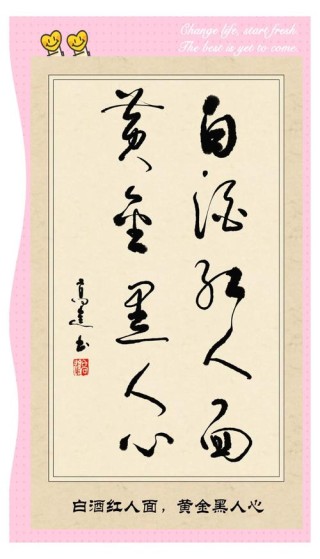 Change life, start fresh.
The best is yet to come.
白酒红人面
黄金黑人心
白酒红人面，黄金黑人心